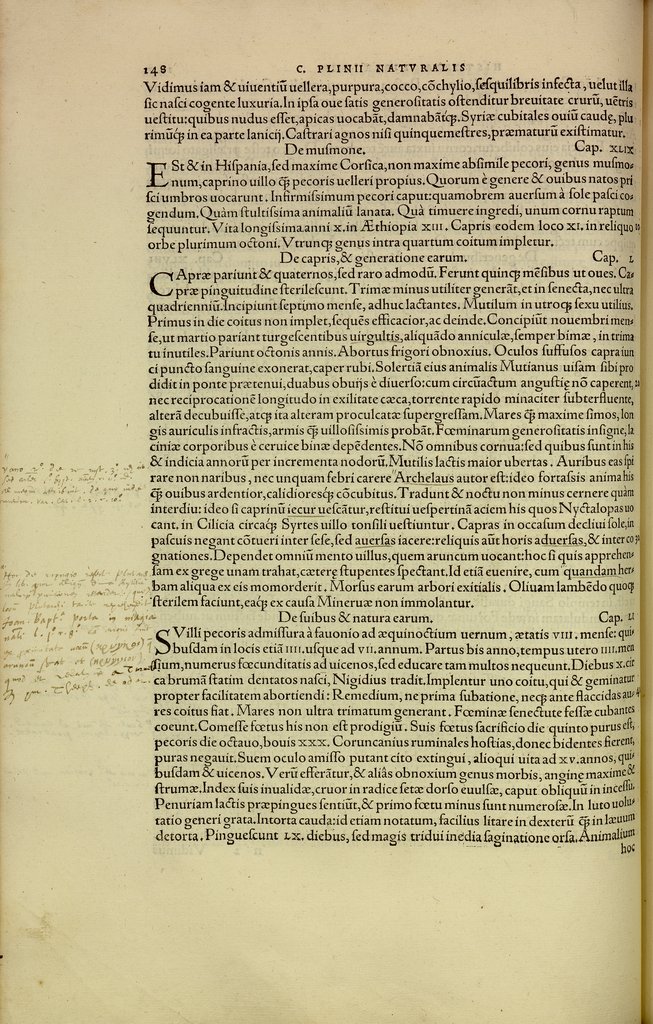 148 C. PLINII NATVRALIS
Vidimus iam & uiuentiũ uellera, purpura, cocco, cõchylio, sesquilibris infecta, uelut illa
sic nasci cogente luxuria. In ipsa oue satis generositatis ostenditur breuitate crurũ, uẽtris
uestitu: quibus nudus esset, apicas uocabãt, damnabãtq́;. Syriæ cubitales ouiũ caudę, plu
rimũq́; in ea parte lanicij. Castrari agnos nisi quinquemestres, præmaturũ existimatur.
De musmone. Cap. XLIX
ESt & in Hispania, sed maxime Corsica, non maxime absimile pecori, genus musmo-
num, caprino uillo q̃; pecoris uelleri propius. Quorum è genere & ouibus natos pri
sci umbros uocarunt. Infirmissimum pecori caput: quamobrem auersum à sole pasci co-
gendum. Quàm stultissima animaliũ lanata. Quà timuere ingredi, unum cornu raptum
sequuntur. Vita longissima anni x. in Æthiopia XIII. Capris eodem loco XI. in reliquo
orbe plurimum octoni. Vtrunq; genus intra quartum coitum impletur.
De capris, & generatione earum. Cap. L
CApræ pariunt & quaternos, sed raro admodũ. Ferunt quinq; mẽsibus ut oues. Ca-
præ pinguitudine sterilescunt. Trimæ minus utiliter generãt, et in senecta, nec ultra
quadrienniũ. Incipiunt septimo mense, adhuc lactantes. Mutilum in utroq; sexu utilius.
Primus in die coitus non implet, sequẽs efficacior, ac deinde. Concipiũt nouembri men-
se, ut martio pariant turgescentibus uirgultis, aliquãdo anniculæ, semper bimæ, in trima
tu inutiles. Pariunt octonis annis. Abortus frigori obnoxius. Oculos suffusos capra iun
ci puncto sanguine exonerat, caper rubi. Solertiã eius animalis Mutianus uisam sibi pro
didit in ponte prætenui, duabus obuijs è diuerso: cum circũactum angustię nõ caperent,
nec reciprocationẽ longitudo in exilitate cæca, torrente rapido minaciter subterfluente,
alterã decubuisse, atq; ita alteram proculcatæ supergressam. Mares q̃; maxime simos, lon
gis auriculis infractis, armis q̃; uillosissimis probãt. Fœminarum generositatis insigne, la
ciniæ corporibus è ceruice binæ depẽdentes. Nõ omnibus cornua: sed quibus sunt in his
& indicia annorũ per incrementa nodorũ. Mutilis lactis maior ubertas. Auribus eas spi
rare non naribus, nec unquam febri carere Archelaus autor est: ideo fortassis anima his
q̃; ouibus ardentior, calidioresq́; cõcubitus. Tradunt & noctu non minus cernere quàm
interdiu: ideo si caprinũ iecur uescãtur, restitui uespertinã aciem his quos Nyctalopas uo
cant. in Cilicia circaq́; Syrtes uillo tonsili uestiuntur. Capras in occasum decliui sole, in
pascuis negant cõtueri inter sese, sed auersas iacere: reliquis aũt horis aduersas, & inter co
gnationes. Dependet omniũ mento uillus, quem aruncum uocant: hoc si quis apprehen-
sam ex grege unam trahat, cæterę stupentes spectant. Id etiã euenire, cum quandam her-
bam aliqua ex eis momorderit. Morsus earum arbori exitialis. Oliuam lambẽdo quoq;
sterilem faciunt, eaq́; ex causa Mineruæ non immolantur.
De suibus & natura earum. Cap. LI
SVilli pecoris admissura à fauonio ad æquinoctium uernum, ætatis VIII. mense: qui-
busdam in locis etiã IIII. usque ad VII. annum. Partus bis anno, tempus utero IIII. men
sium, numerus fœcunditatis ad uicenos, sed educare tam multos nequeunt. Diebus x. cir
ca brumã statim dentatos nasci, Nigidius tradit. Implentur uno coitu, qui & geminatur
propter facilitatem abortiendi: Remedium, ne prima subatione, neq; ante flaccidas au-
res coitus fiat. Mares non ultra trimatum generant. Fœminæ senectute fessæ cubantes
coeunt. Comesse fœtus his non est prodigiũ. Suis fœtus sacrificio die quinto purus est,
pecoris die octauo, bouis XXX. Coruncanius ruminales hostias, donec bidentes fierent,
puras negauit. Suem oculo amisso putant cito extingui, alioqui uita ad XV. annos, qui-
busdam & uicenos. Verũ efferãtur, & aliàs obnoxium genus morbis, anginę maxime &
strumæ. Index suis inualidæ, cruor in radice setæ dorso euulsæ, caput obliquũ in incessu.
Penuriam lactis præpingues sentiũt, & primo fœtu minus sunt numerosæ. In luto uolu-
tatio generi grata. Intorta cauda: id etiam notatum, facilius litare in dexterũ q̃; in læuum
detorta. Pinguescunt LX. diebus, sed magis tridui inedia saginatione orsa. Animalium
hoc